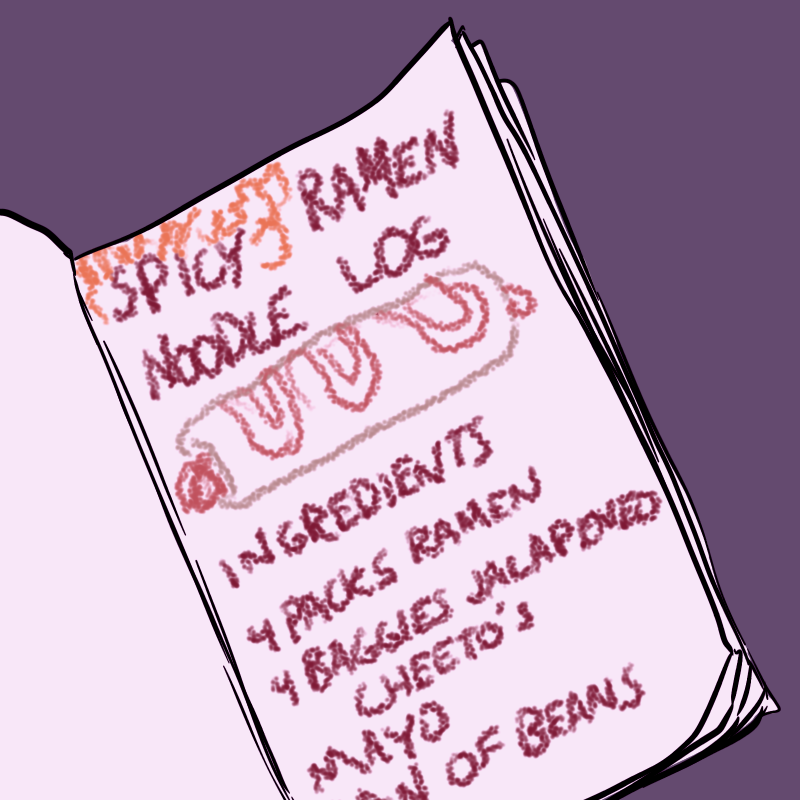 SPICY RAMEN
NOODLE LOG
INGREDIENTS
4 PACKS RAMEN
4 BAGGIES JALAPONEO
CHEETO'S
MAYO
OF BEANS